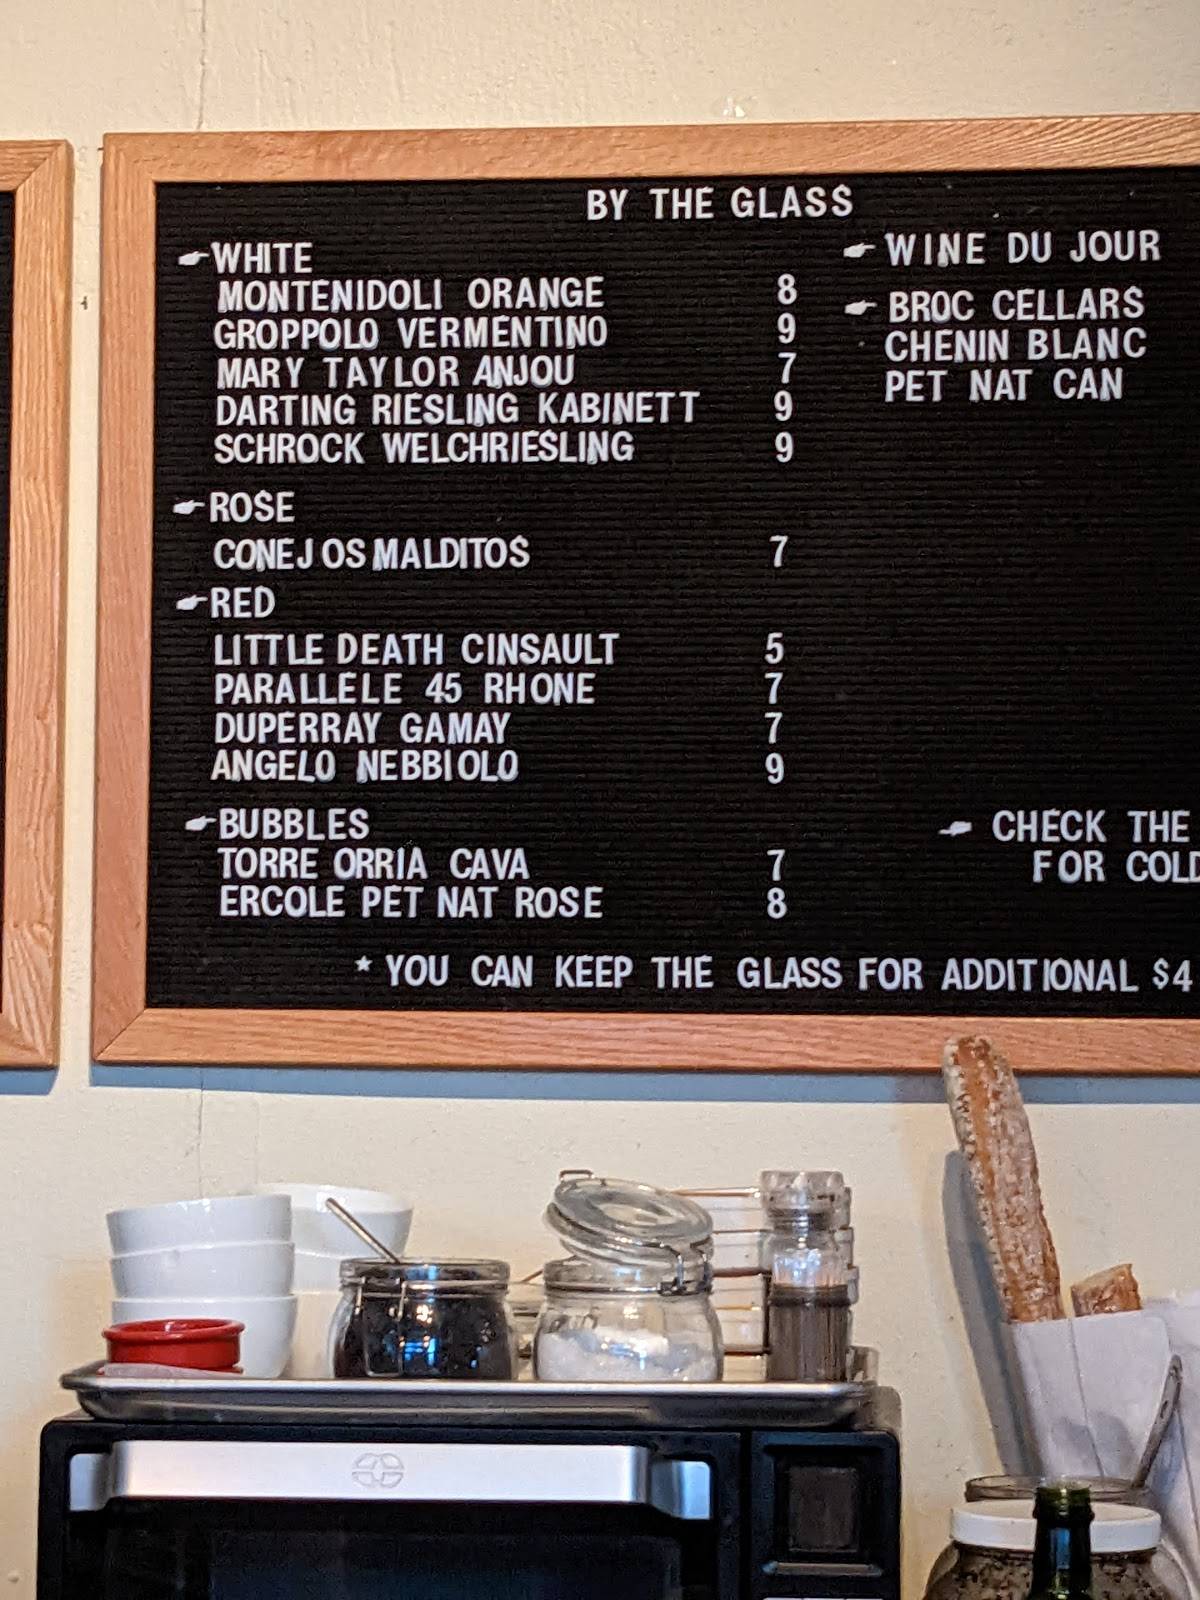 BY THE GLASS
WHITE
MONTENIDOLI ORANGE 8
GROPPOLO VERMENTINO 9
MARY TAYLOR ANJOU 7
DARTING RIESLING KABINETT 9
SCHROCK WELCHRIESLING 9
ROSE
CONEJOS MALDITOS 7
RED
LITTLE DEATH CINSAULT 5
PARALLELE 45 RHONE 7
DUPERRAY GAMAY 7
ANGELO NEBBIOLO 9
BUBBLES
TORRE ORRIA CAVA 7
ERCOLE PET NAT ROSE 8
WINE DU JOUR
BROC CELLARS
CHENIN BLANC
PET NAT CAN
CHECK THE
FOR COLD
* YOU CAN KEEP THE GLASS FOR ADDITIONAL $4